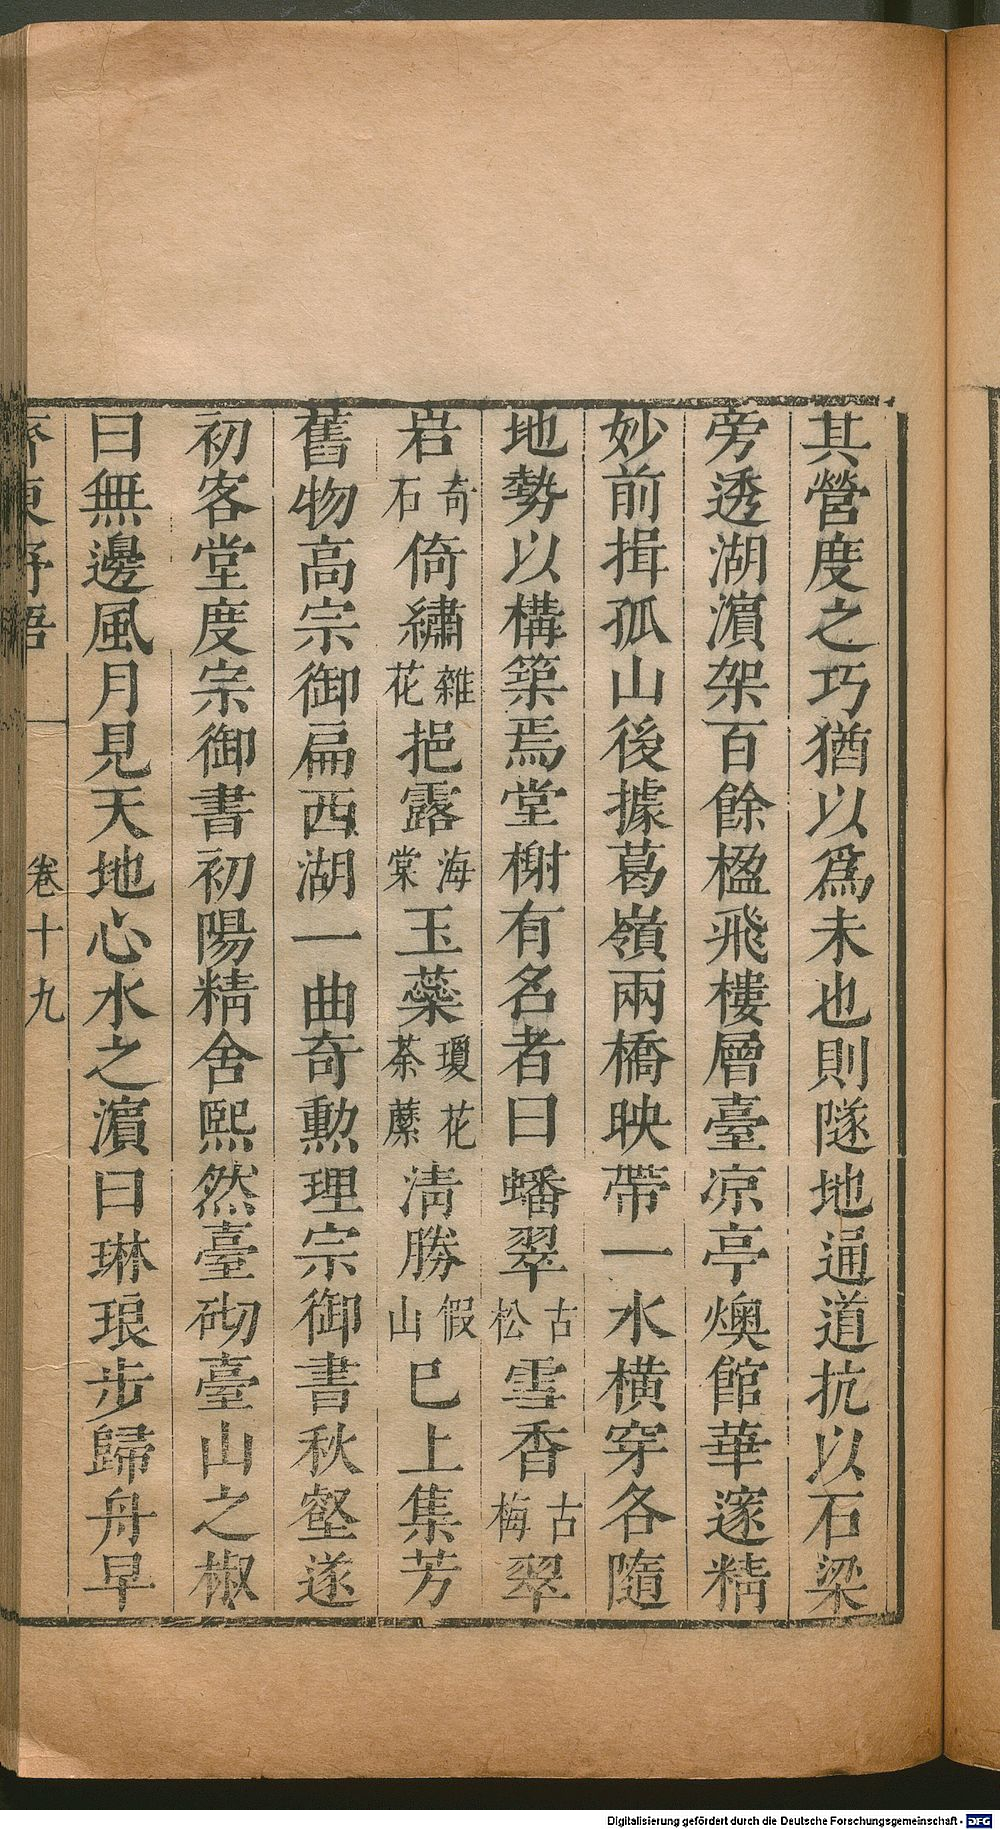 其營度之巧猶以爲未也則隧地通道抗以石梁
旁透湖濵架百餘楹飛樓層臺凉亭燠館華邃精
妙前揖孤山後據葛嶺兩橋映帶一水横穿各隨
地勢以構築焉堂榭有名者曰蟠翠古松雪香古梅翠
岩奇石倚繡雜花挹露海棠玉蘂瓊花荼䕷清勝假山巳上集芳
舊物高宗御扁西湖一曲奇勲理宗御書秋壑遂
初客堂度宗御書初陽精舍熙然臺砌臺山之椒
曰無邊風月見天地心水之濵曰琳琅步歸舟早
齊東野語
卷十九
Digitalisierung gefördert durch die Deutsche Forschungsgemeinschaft - DFG